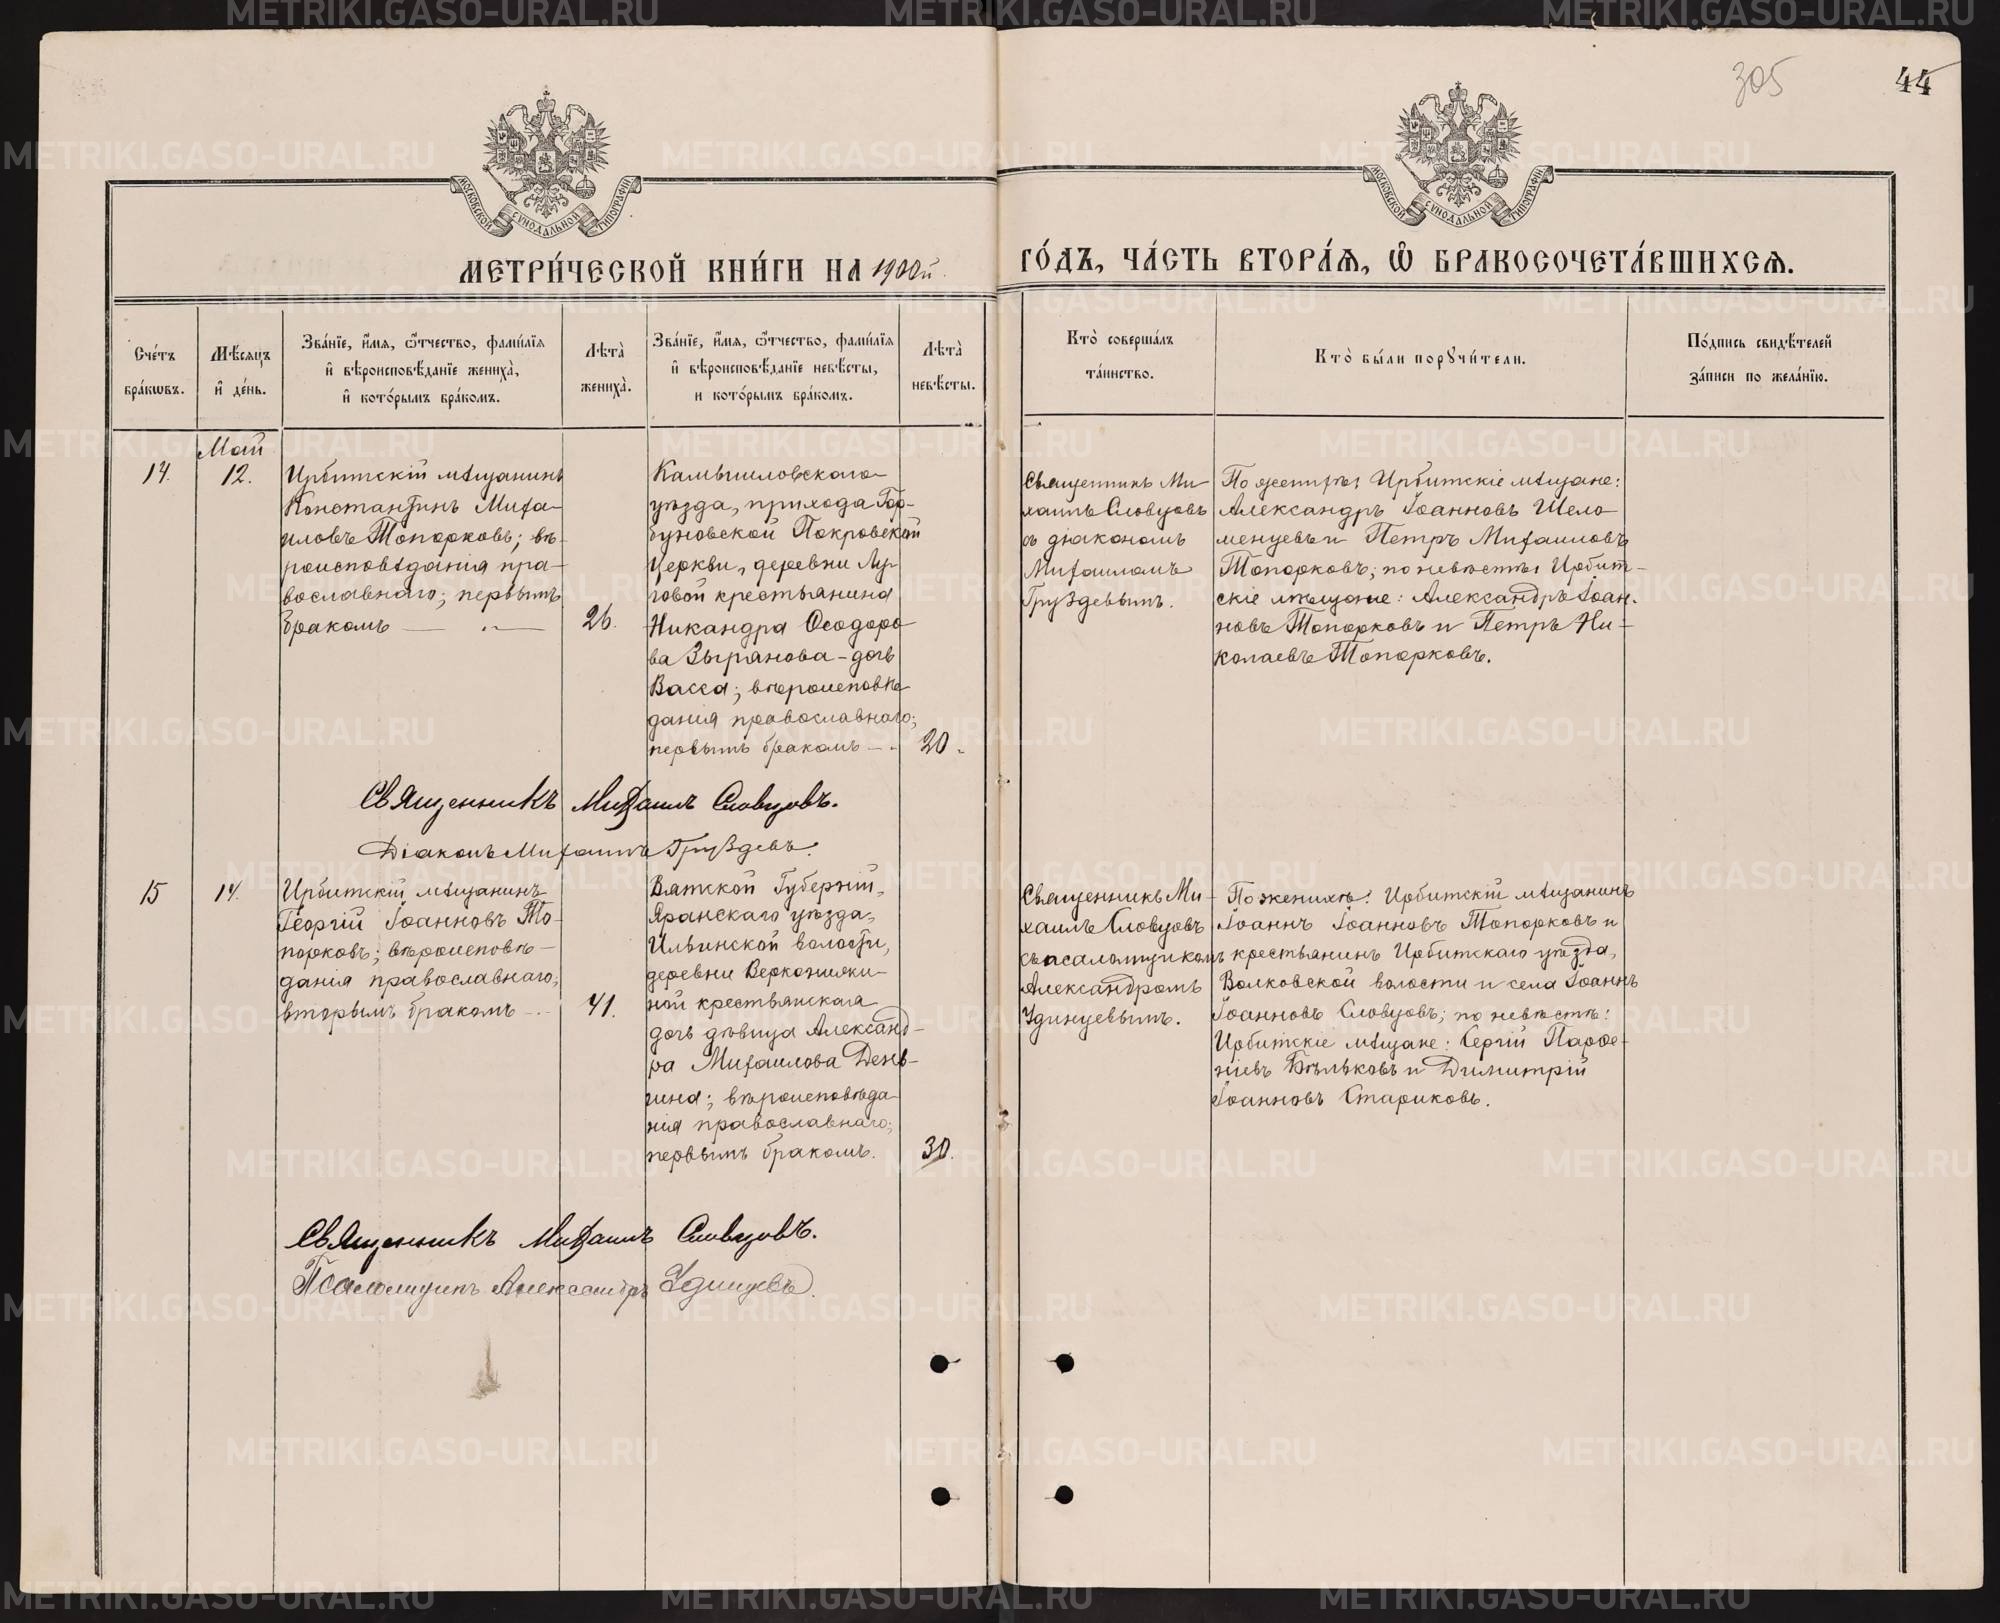 305
44
МОСКОВСКОЙ СѴНОДАЛЬНОЙ ТИПОГРАФІИ
МОСКОВСКОЙ СѴНОДАЛЬНОЙ ТИПОГРАФІИ
МЕТРИ́ЧЕСКОЙ КНИ́ГИ НА 1900й
ГО́ДЪ, ЧА́СТЬ ВТОРА́Ѧ, Ѿ БРАКОСОЧЕТА́ВШИХСѦ.
Сче́тъ
бра́кѡвъ.
Мѣ́сяцъ
и де́нь.
Зва́нїе, и́мя, ѻ́тчество, фами́лїя
и вѣроисповѣ́данїе жениха̀,
и кото́рымъ бра́комъ.
Лѣта̀
жениха̀.
Зва́нїе, и́мя, ѻ́тчество, фами́лїя
и вѣроисповѣ́данїе невѣ́сты,
и кото́рымъ бра́комъ.
Лѣта̀
невѣ́сты.
Кто̀ соверша́лъ
та́инство.
Кто̀ бы́ли порꙋчи́тели.
По́дпись свидѣ́телей
за́писи по жела́нїю.
Май
14.
12.
Ирбитскій мѣщанинъ
Константинъ Миха-
иловъ Топорковъ; вѣ-
роисповѣданія пра-
вославнаго; первымъ
бракомъ
26.
Камышловскаго
уѣзда, прихода Гор-
буновской Покровской
Церкви, деревни Лу-
говой крестьянина
Никандра Ѳеодоро
ва Зырянова - дочь
Васса; вѣроисповѣ
данія православнаго;
первымъ бракомъ - -
20.
Священникъ Ми
хаилъ Словцовъ
съ діакономъ
Михаиломъ
Груздевымъ.
По женихѣ: Ирбитскіе мѣщане:
Александръ Іоанновъ Шело
менцевъ и Петръ Михаиловъ
Топорковъ; по невѣстѣ: Ирбит-
скіе мѣщане: Александръ Іоан-
новъ Топорковъ и Петръ Ни-
колаевъ Топорковъ.
Священникъ Михаилъ Словцовъ.
Діаконъ Михаилъ Груздевъ.
15
14.
Ирбитскій мѣщанинъ
Георгій Іоанновъ То-
порковъ; вѣроисповѣ-
данія православнаго;
вторымъ бракомъ -
41.
Вятской Губерніи,
Яранскаго уѣзда,
Ильинской волости,
деревни
ной крестьянская
дочь дѣвица Александ-
ра Михаилова День-
гина; вѣроисповѣда
нія православнаго;
первымъ бракомъ.
30.
Священникъ Ми-
хаилъ Словцовъ
съ псаломщикомъ
Александромъ
Удинцевымъ.
По женихѣ: Ирбитскій мѣщанинъ
Іоаннъ Іоанновъ Топорковъ и
крестьянинъ Ирбитскаго уѣзда,
Волковской волости и села Іоаннъ
Іоанновъ Словцовъ; по невѣстѣ:
Ирбитскіе мѣщане: Сергій Парѳе-
ніевъ Бѣльковъ и Димитрій
Іоанновъ Стариковъ.
Священникъ Михаилъ Словцовъ.
Псаломщикъ Александръ Удинцевъ.
METRIKI.GASO-URAL.RU